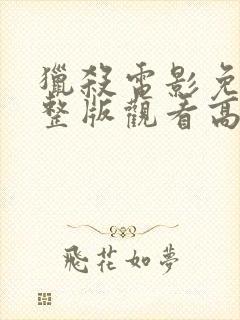 獵殺電影免
整版觀看高
飛花如夢